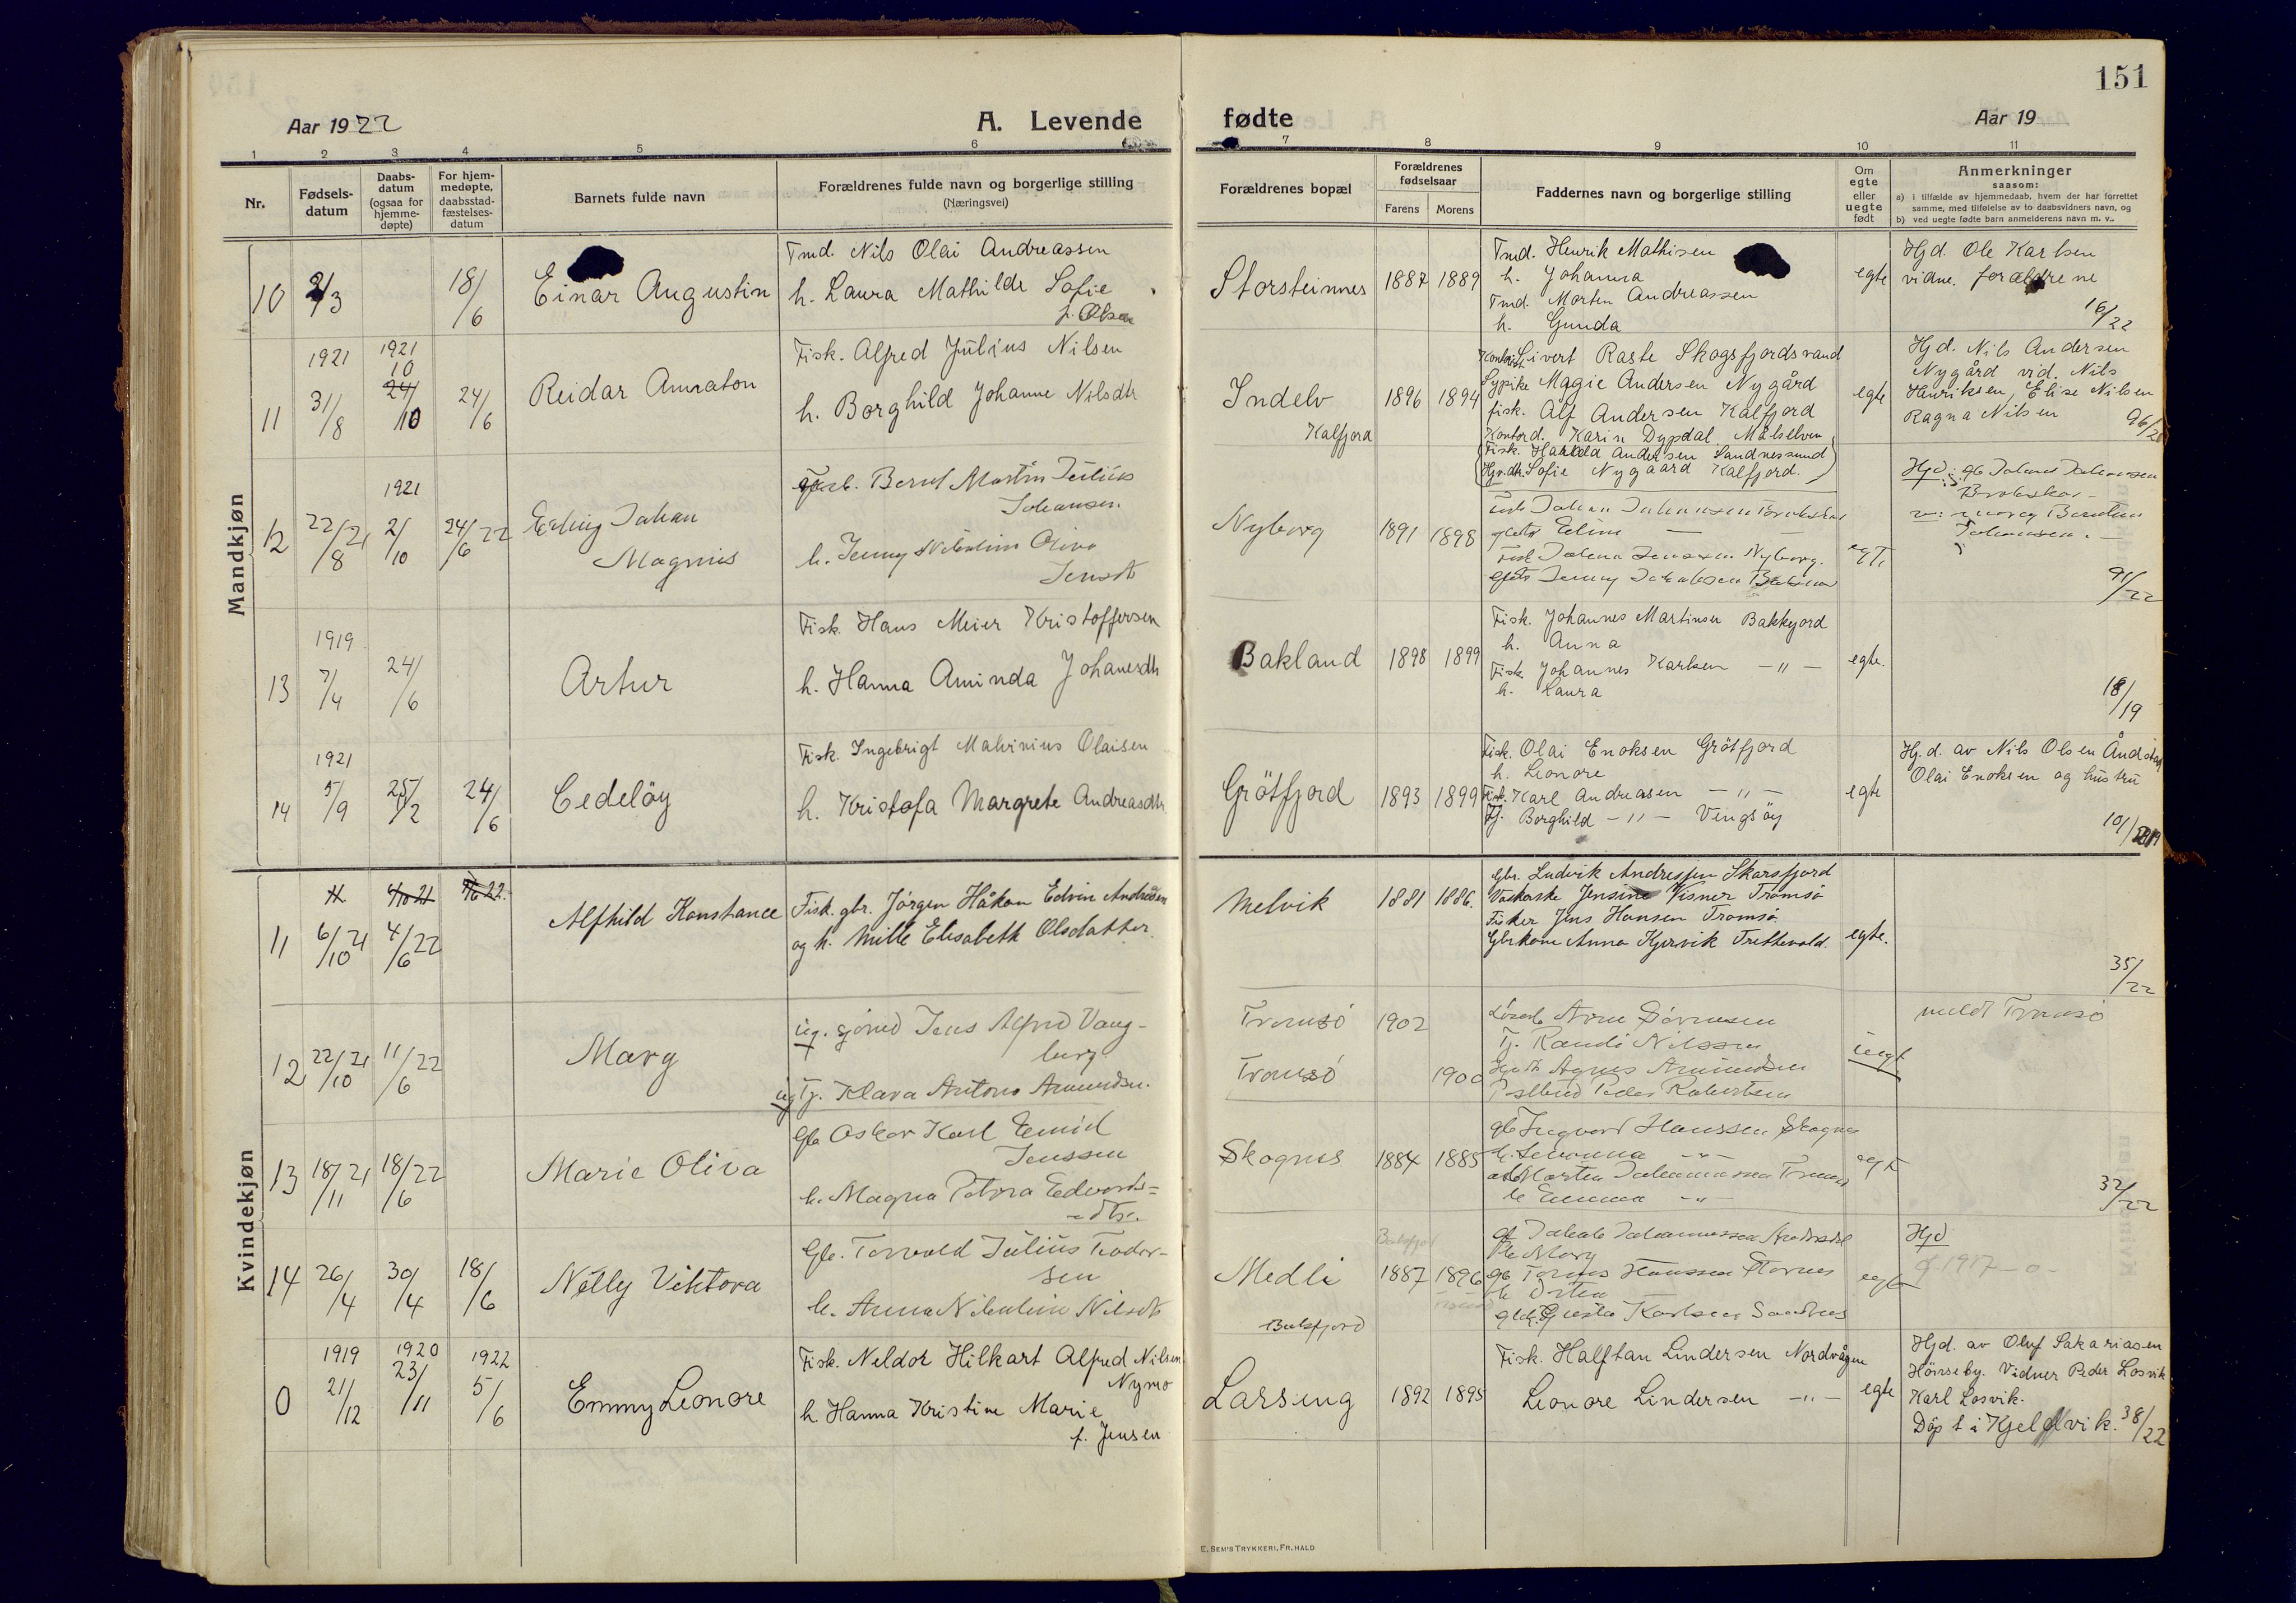 151
Aar 1922
A. Levende
fødte
Aar 19
1 2 3 4 5 6 7 8 9 10 11
Nr.
Fødsels-
datum
Daabs-
datum
(ogsaa for
hjemme-
døpte)
For hjem-
medøpte,
daabsstad-
fæstelses-
datum
Barnets fulde navn
Forældrenes fulde navn og borgerlige stilling
(Næringsvei)
Forældrenes bopæl
Forældrenes
fødselsaar
Farens Morens
Faddernes navn og borgerlige stilling
Om
egte
eller
uegte
født
Anmerkninger
saasom:
a) i tilfælde av hjemmedaab, hvem der har forrettet
samme, med tilføielse av to daabsvidners navn, og
b) ved uegte fødte barn anmelderens navn m. v..
Mandkjøn
10
2/3
18/6
Einar Augustin
Tmd. Nils Olai Andreassen
h. Laura Mathilde Sofie
f. Olsen
Storsteinnes
1887 1889
Tmd. Henrik Mathisen
h. Johanna
Tmd. Morten Andreassen
h. Gunda
egte
Hjd. Ole Karlsen
vidne. forældrene
16/22
11
1921
31/8
1921
10
24/10
24/6
Reidar Amraton
Fisk. Alfred Julius Nilsen
h. Borghild Johanne Nilsdtr
Indelv
Kalfjord
1896 1894
Sivert Raste Skogsfjordsvand
Sypike Magie Andersen Nygård
fisk. Alf Andersen Kalfjord
Kontord. Karin Dypdal Målselven
(Fisk. Harald Andersen Sandnessund
Sofie Nygaard Kalfjord.)
egte
Hjd. Nils Andersen
Nygård vid. Nils
Henriksen, Elise Nilsen
Ragna Nilsen
12
22/8 21
1921
2/10
24/6 22
Erling Johan
Magnus
Bernt Martin Julius
Johansen.
h. Jenny Nikoline Oliva
Jensdtr
Nyborg
1891 1898
Johan Johansen
Eline
Fisk. Johan Jensen Nyborg.
Jenny
egte
Hjd: gb Johan Johansen
Johansen.
91/22
13
1919
7/4
24/6
Artur
Fisk. Hans Meier Kristoffersen
h. Hanna Aminda Johanesdtr
Bakland
1898 1899
Fisk. Johannes Martinsen Bakkejord
h. Anna
Fisk. Johannes Karlsen - " -
h. Laura
egte.
18/19
14
1921
5/9
25/2
24/6
Cedeløy
Fisk. Ingebrigt Malvinius Olaisen
h. Kristofa Margrete Andreasdtr
Grötfjord
1893 1899
Fisk. Olai Enoksen Grötfjord
h. Leonore
Fisk. Karl Andreasen - " -
Tj. Borghild - " - Vengsöy
egte
Hj.d. av Nils Olsen
Olai Enoksen og hustru
Kvindekjøn
11
6/10 21
4/6 22
Alfhild Konstance
Fisk. gbr. Jørgen Håkon Edvin Andresen
og h. Mille Elisabeth Olsdatter.
Melvik
1881 1886.
Gbr. Ludvik Andressen Skarsfjord
Jensine Visner Tromsø
Fisker Jens Hansen Tromsø
Gbrkone Anna Kjervik Trettevold.
egte.
35/22
12
22/10 21
11/6 22
Mary
ug. sjømd Jens Alfred Vang-
berg
ug Tj. Klara Antona Amundsen.
Tromsö
Tromsö
1902
1900
Arne Sørensen
Tj. Randi Nilssen
Agnes Amundsen
Peder Robertsen
uegt
meldt Tromsö
13
18/11 21
18/6 22
Marie Oliva
Gb Oskar Karl Emil
Jenssen
h. Magna Petora Edvards=
-dtr.
Skognes
1884 1885
gb Ingvard Hanssen Skognes
Morten Johannessen
h Emma - " -
egt
32/22
14
26/4
30/4
18/6
Nelly Viktora
Gb. Torvald Julius Teodor-
sen
h. Anna Nikoline Nilsdtr
Medli
Balsfjord
Balsfjord
1887 1896
Mary
gb Hanssen Stornes
Karlsen Sandnes
egte
Hjd
0
1919
21/12
1920
23/11
1922
5/6
Emmy Leonore
Fisk. Neldor Hilkart Alfred Nilsen
Nymo
h Hanna Kristine Marie
f. Jensen
Larseng
1892 1895
Fisk. Halftan Lindersen Nordvågen
Leonore Lindersen - " -
egte
Hjd. av Oluf Sakariasen
Hönseby. Vidner Peder Losvik
Karl Losvik.
Döpt i Kjelvik. 38/22
E. SEM'S TRYKKERI, FR.HALD